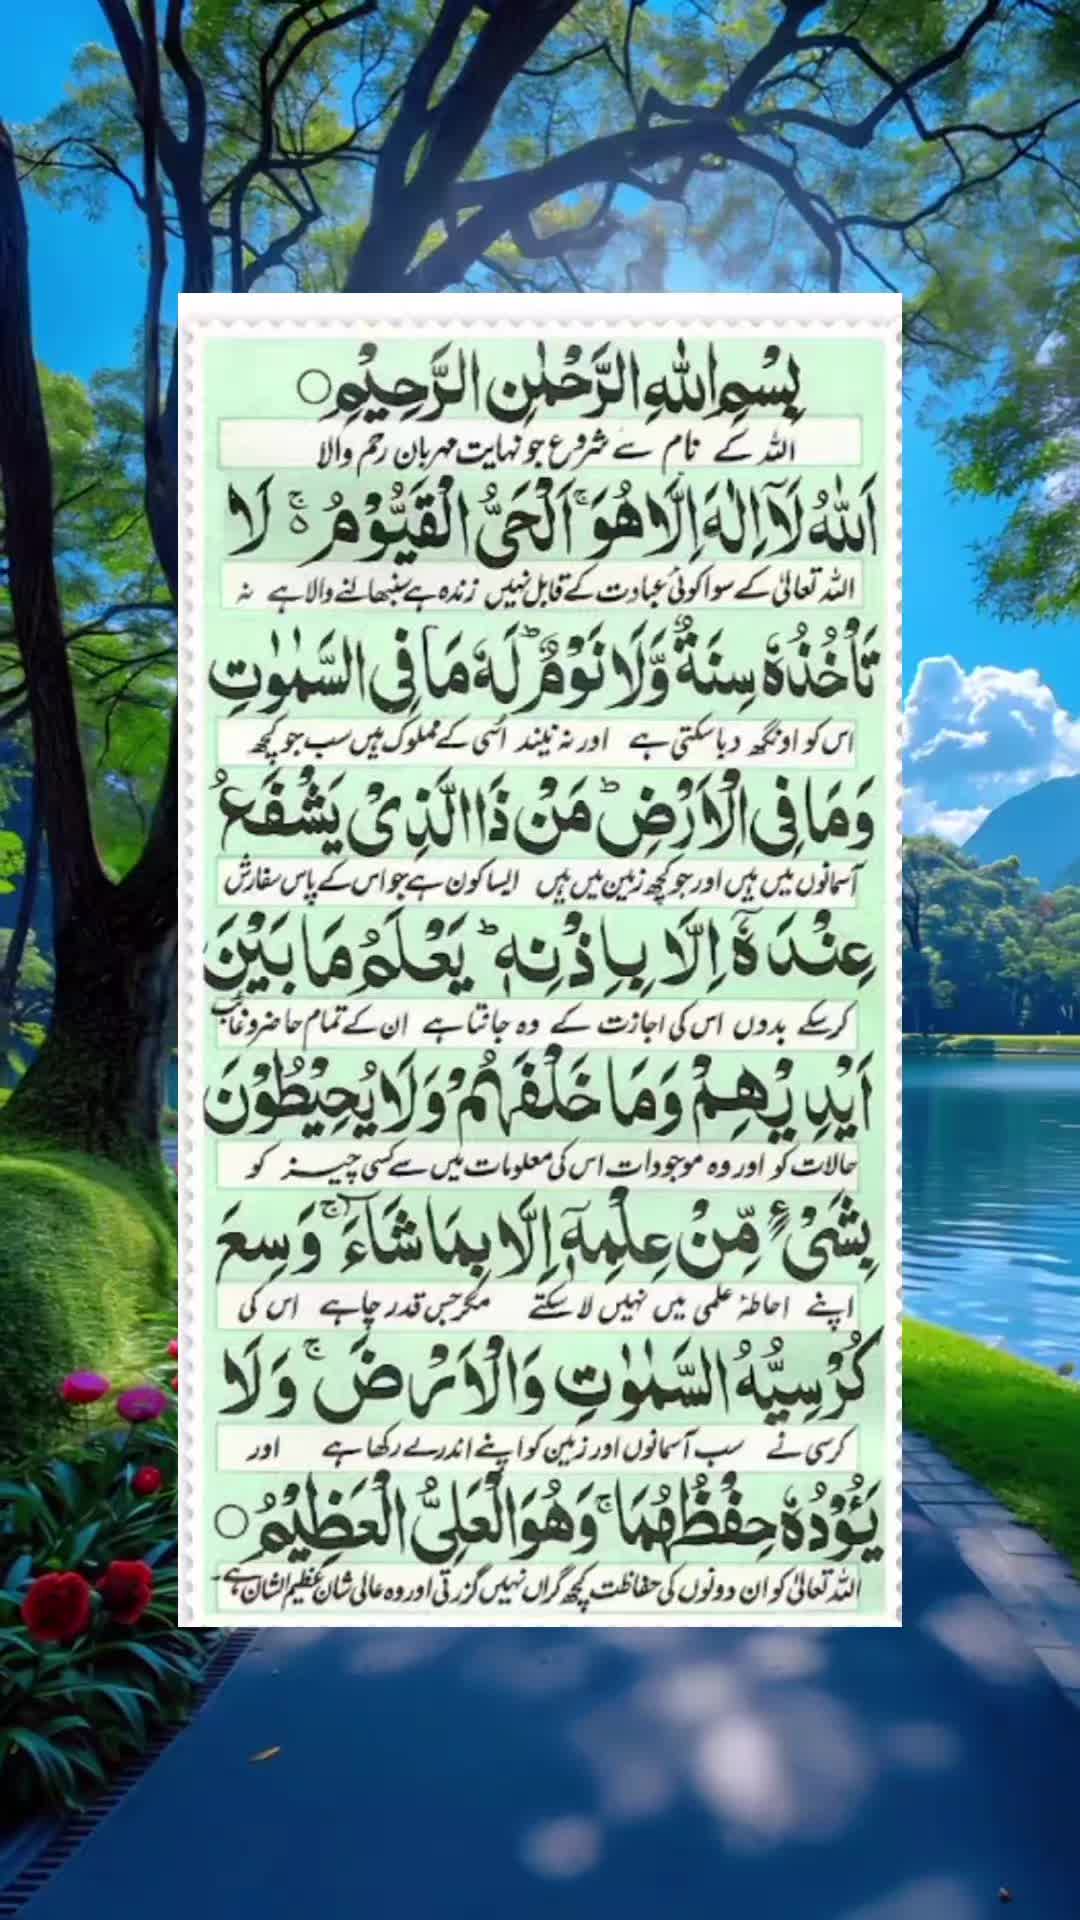 بِسْمِ اللّٰهِ الرَّحْمٰنِ الرَّحِيْمِ○
اللہ کے نام سے شروع جو نہایت مہربان رحم والا
اَللّٰهُ لَآ اِلٰهَ اِلَّا هُوَ ۚ اَلْحَيُّ الْقَيُّوْمُ ۚ ە لَا
اللہ تعالیٰ کے سوا کوئی عبادت کے قابل نہیں زندہ ہے سنبھالنے والا ہے نہ
تَاْخُذُهٗ سِنَةٌ وَّلَا نَوْمٌ ؕ لَهٗ مَا فِى السَّمٰوٰتِ
اس کو اونگھ دبا سکتی ہے اور نہ نیند اسی کے مملوک ہیں سب جو کچھ
وَمَا فِى الْاَرْضِ ؕ مَنْ ذَا الَّذِىْ يَشْفَعُ
آسمانوں میں ہیں اور جو کچھ زمین میں ہیں ایسا کون ہے جو اس کے پاس سفارش
عِنْدَهٗٓ اِلَّا بِاِذْنِهٖ ؕ يَعْلَمُ مَا بَيْنَ
کر سکے بدوں اس کی اجازت کے وہ جانتا ہے ان کے تمام حاضر و غائب
اَيْدِيْهِمْ وَمَا خَلْفَهُمْ وَلَا يُحِيْطُوْنَ
حالات کو اور وہ موجودات اس کی معلومات میں سے کسی چیز کو
بِشَىْءٍ مِّنْ عِلْمِهٖٓ اِلَّا بِمَا شَآءَ ۚ وَسِعَ
اپنے احاطۂ علمی میں نہیں لا سکتے مگر جس قدر چاہے اس کی
كُرْسِيُّهُ السَّمٰوٰتِ وَالْاَرْضَ ۚ وَلَا
کرسی نے سب آسمانوں اور زمین کو اپنے اندر لے رکھا ہے اور
يَـُٔوْدُهٗ حِفْظُهُمَا ۚ وَهُوَ الْعَلِىُّ الْعَظِيْمُ○
اللہ تعالیٰ کو ان دونوں کی حفاظت کچھ گراں نہیں گزرتی اور وہ عالی شان عظیم الشان ہے۔